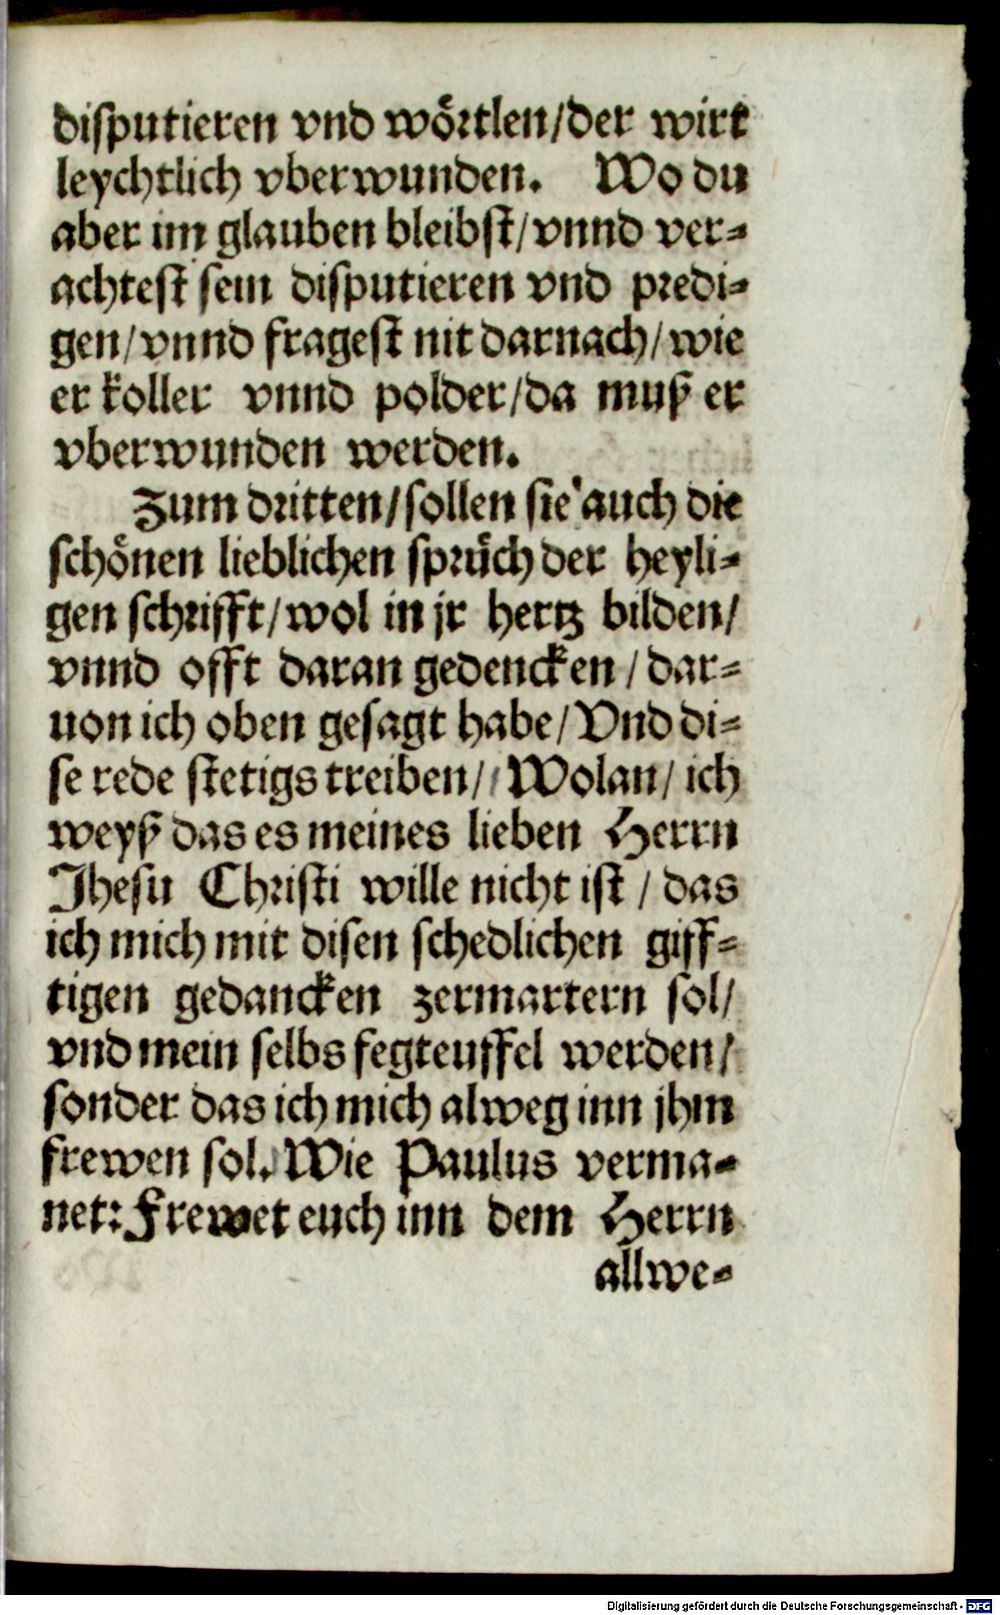 disputieren vnd wörtlen/der wirt
leychtlich vberwunden. Wo du
aber im glauben bleibst/vnnd ver-
achtest sein disputieren vnd predi-
gen/vnnd fragest nit darnach/wie
er koller vnnd polder/da muß er
vberwunden werden.
Zum dritten/sollen sie auch die
schönen lieblichen sprüch der heyli-
gen schrifft/wol in jr hertz bilden/
vnnd offt daran gedencken/dar-
uon ich oben gesagt habe/Vnd di-
se rede stetigs treiben/Wolan/ich
weyß das es meines lieben Herrn
Jhesu Christi wille nicht ist/das
ich mich mit disen schedlichen giff-
tigen gedancken zermartern sol/
vnd mein selbs fegteuffel werden/
sonder das ich mich alweg inn jhm
frewen sol. Wie Paulus verma-
net: Frewet euch inn dem Herrn
allwe-
Digitalisierung gefördert durch die Deutsche Forschungsgemeinschaft - DFG